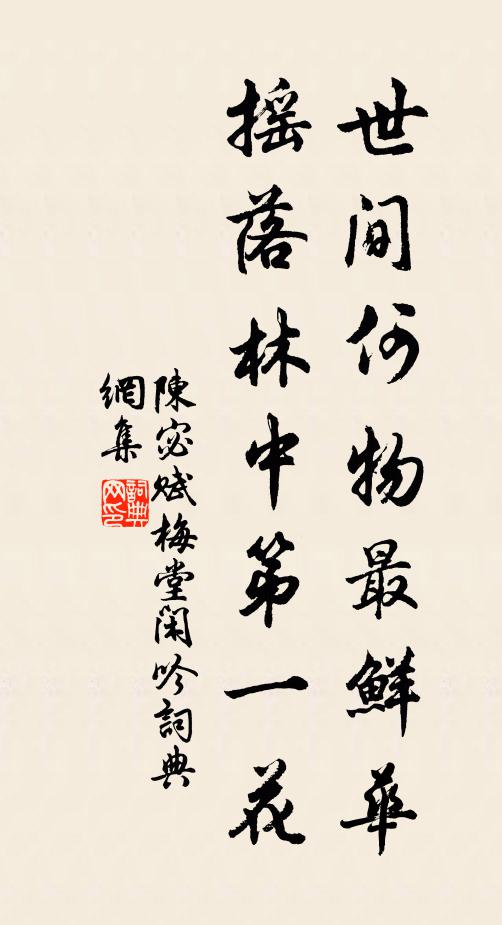 世间何物最鲜华
摇落林中第一花
陳宓赋梅堂闲吟詞典
網集
詞典
网印